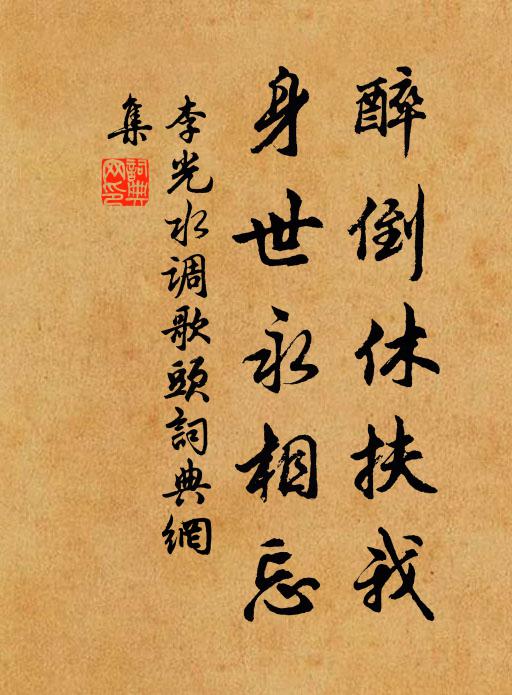 醉倒休扶我
身世永相忘
李光水调歌頭詞典網
集
詞典
网印